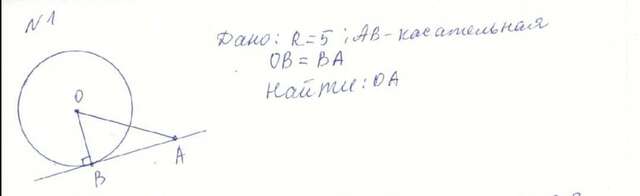 N1
Дано: R=5 ; AB-касательная
OB = BA
Найти: OA
O
A
B